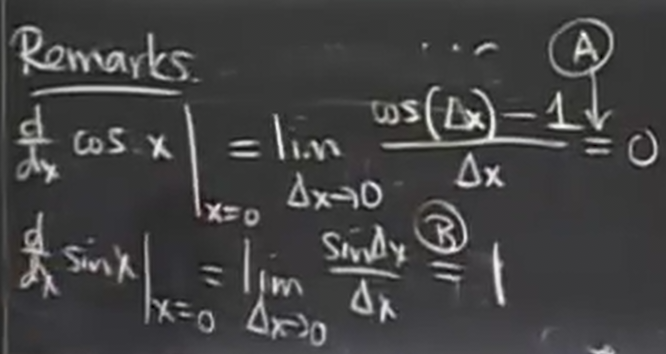 Remarks.
A
d/dx cos x |x=0 = lim Δx→0 cos(Δx) - 1 / Δx = 0
d/dx sin x |x=0 = lim Δx→0 sin Δx / Δx = 1
B